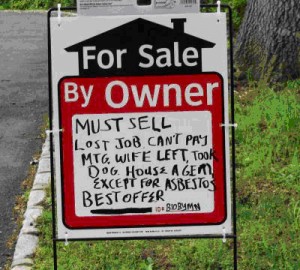 For Sale
By Owner
MUST SELL
LOST JOB, CAN'T PAY
MTG, WIFE LEFT, TOOK
DOG. HOUSE A GEM,
EXCEPT FOR ASBESTOS
BEST OFFER